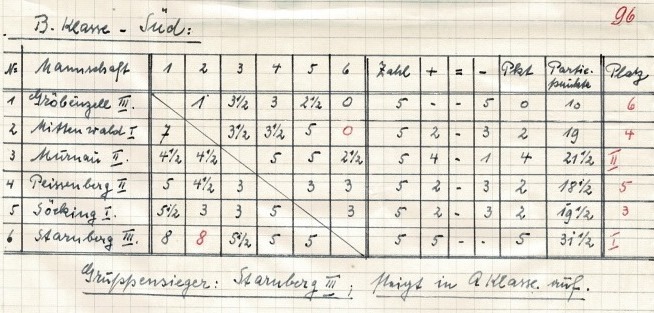 96
B. Klasse - Süd:
No Mannschaft 1 2 3 4 5 6 Zahl + = - Pkt Partiepunkte Platz
1 Gröbenzell III. 1 3½ 3 2½ 0 5 - - 5 0 10 6
2 Mittenwald I 7 3½ 3½ 5 0 5 2 - 3 2 19 4
3 Murnau II. 4½ 4½ 5 5 2½ 5 4 - 1 4 21½ II
4 Peissenberg II 5 4½ 3 3 3 5 2 - 3 2 18½ 5
5 Söcking I. 5½ 3 3 5 3 5 2 - 3 2 19½ 3
6 Starnberg III. 8 8 5½ 5 5 5 5 - 5 31½ I
Gruppensieger: Starnberg III; steigt in A Klasse auf.